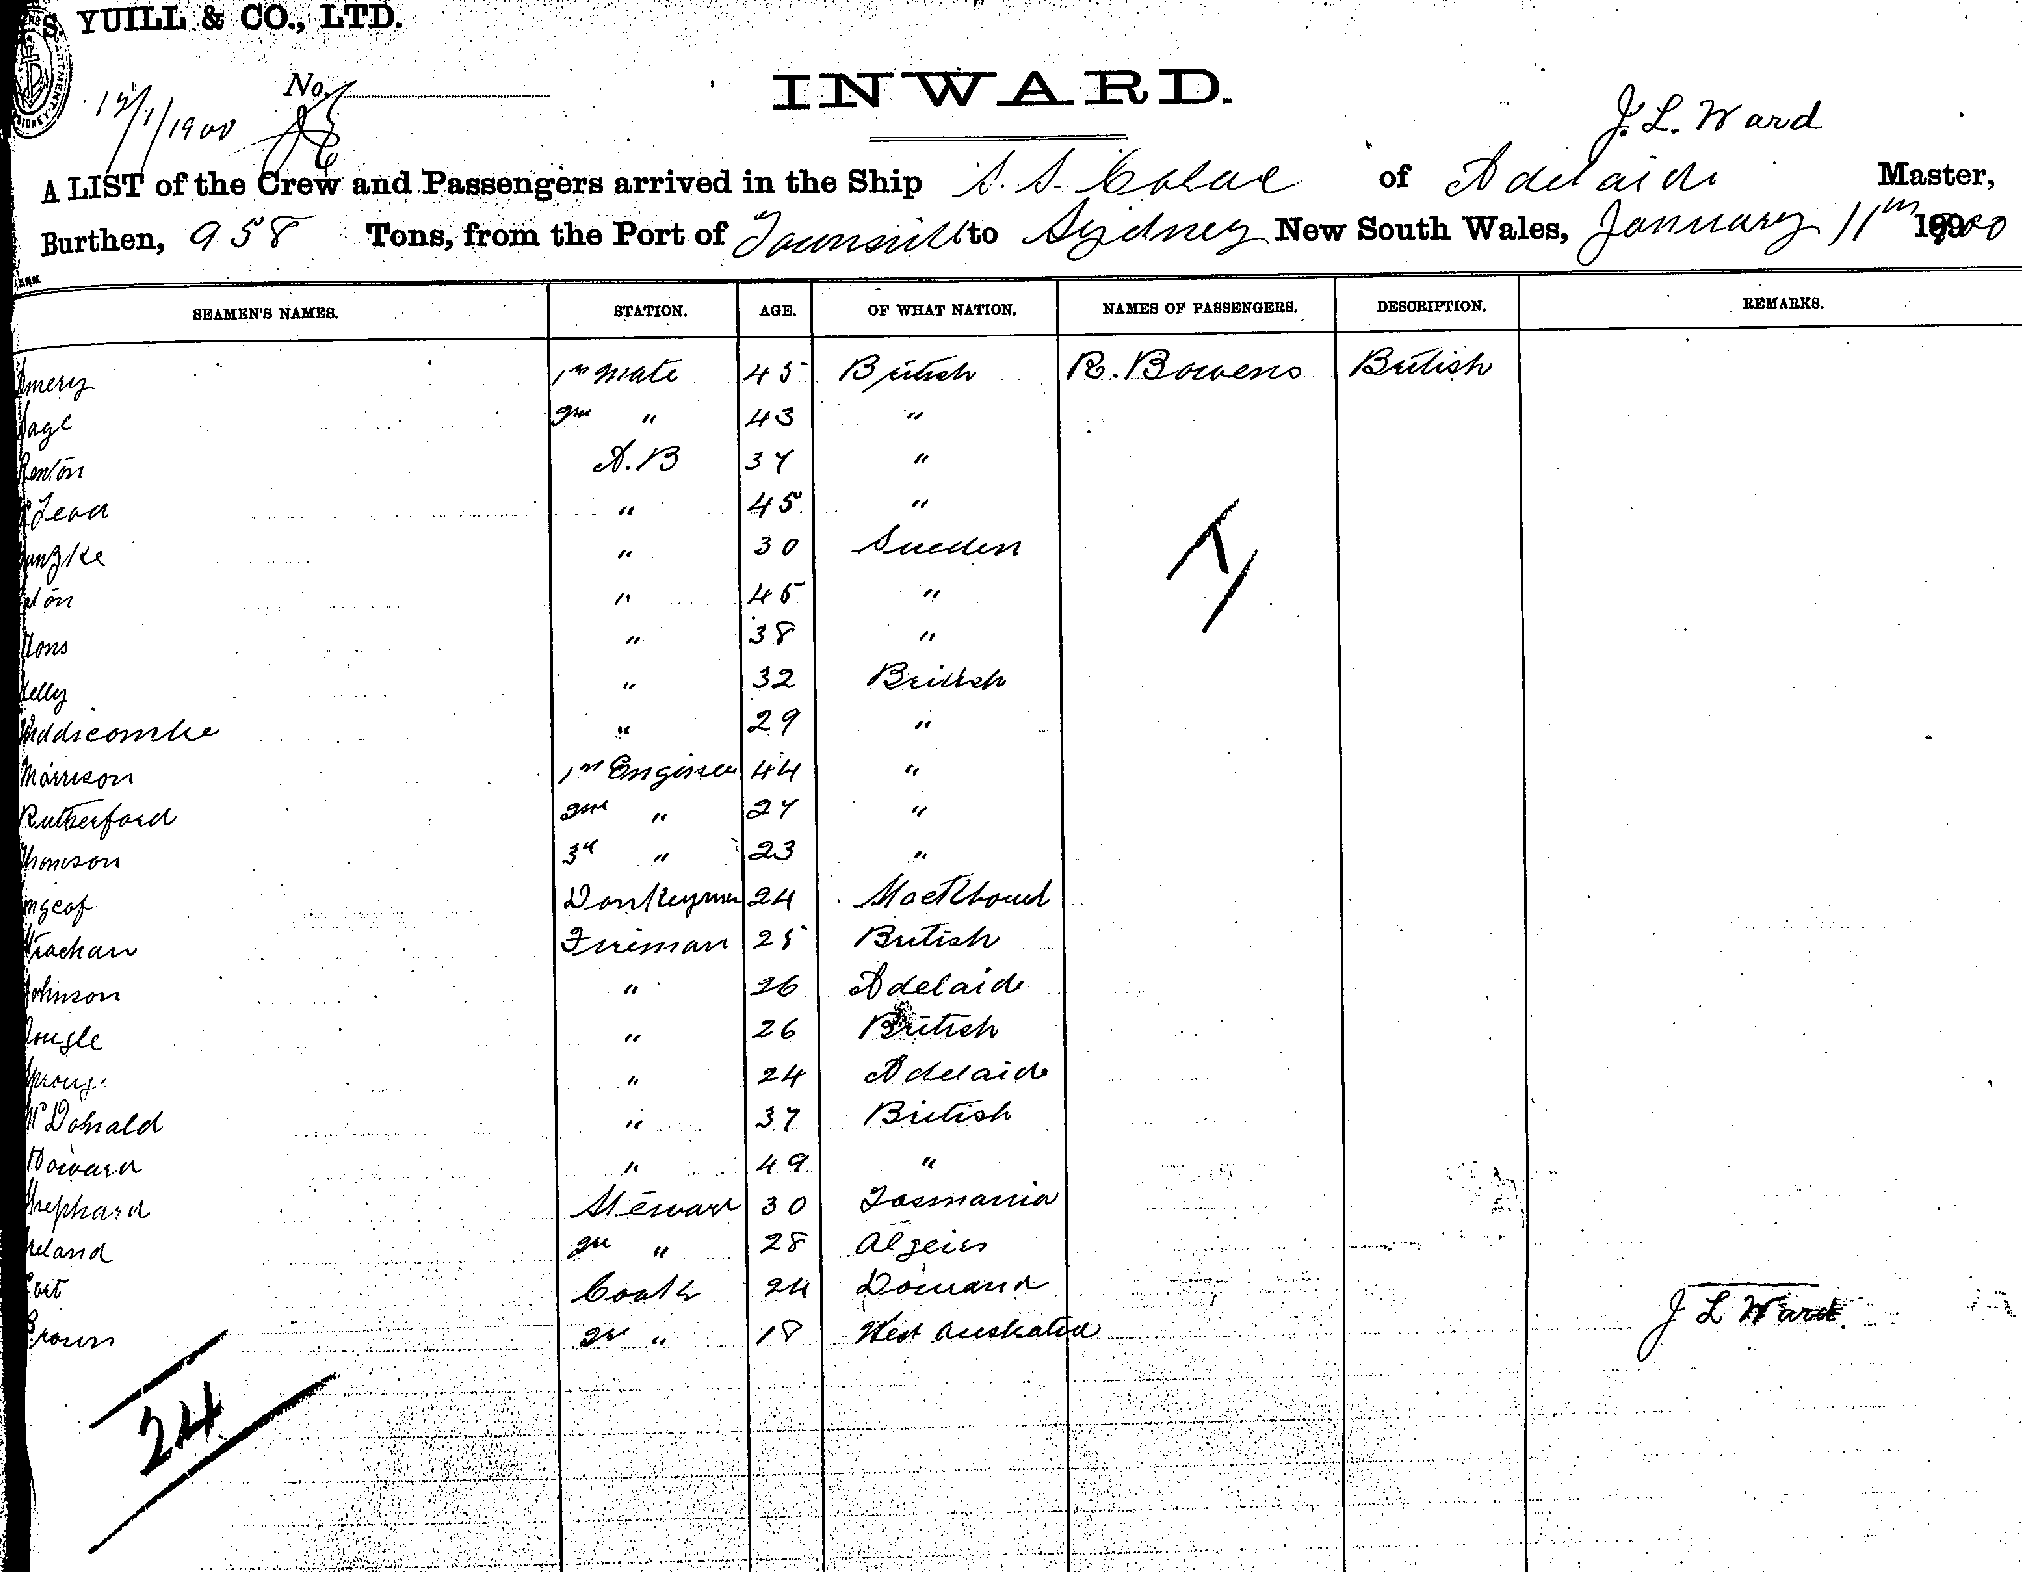 S. YUILL & CO., LTD.
No.
12/1/1900
INWARD.
J. L. Ward
A LIST of the Crew and Passengers arrived in the Ship S. S. Colac of Adelaide Master,
Burthen, 958 Tons, from the Port of Townsville to Sydney New South Wales, January 11th 1900
SEAMEN'S NAMES. STATION. AGE. OF WHAT NATION. NAMES OF PASSENGERS. DESCRIPTION. REMARKS.
mery 1st Mate 45 British R. Bowens British
age 2nd " 43 "
Renton A.B 37 "
" 45 "
" 30 Sweden
" 45 "
" 38 "
elly " 32 British
ddicombe " 29 "
Morrison 1st Engineer 44 "
Rutherford 2nd " 27 "
homson 3d " 23 "
Donkeyman 24
trachan Fireman 25 British
ohnson " 26 Adelaide
ougle " 26 British
" 24 Adelaide
McDonald " 37 British
Howard " 49 "
hephard Steward 30 Tasmania
reland 2nd " 28 Algeirs
Cook 24
Brown 2nd " 18 West Australia
J L Ward
24